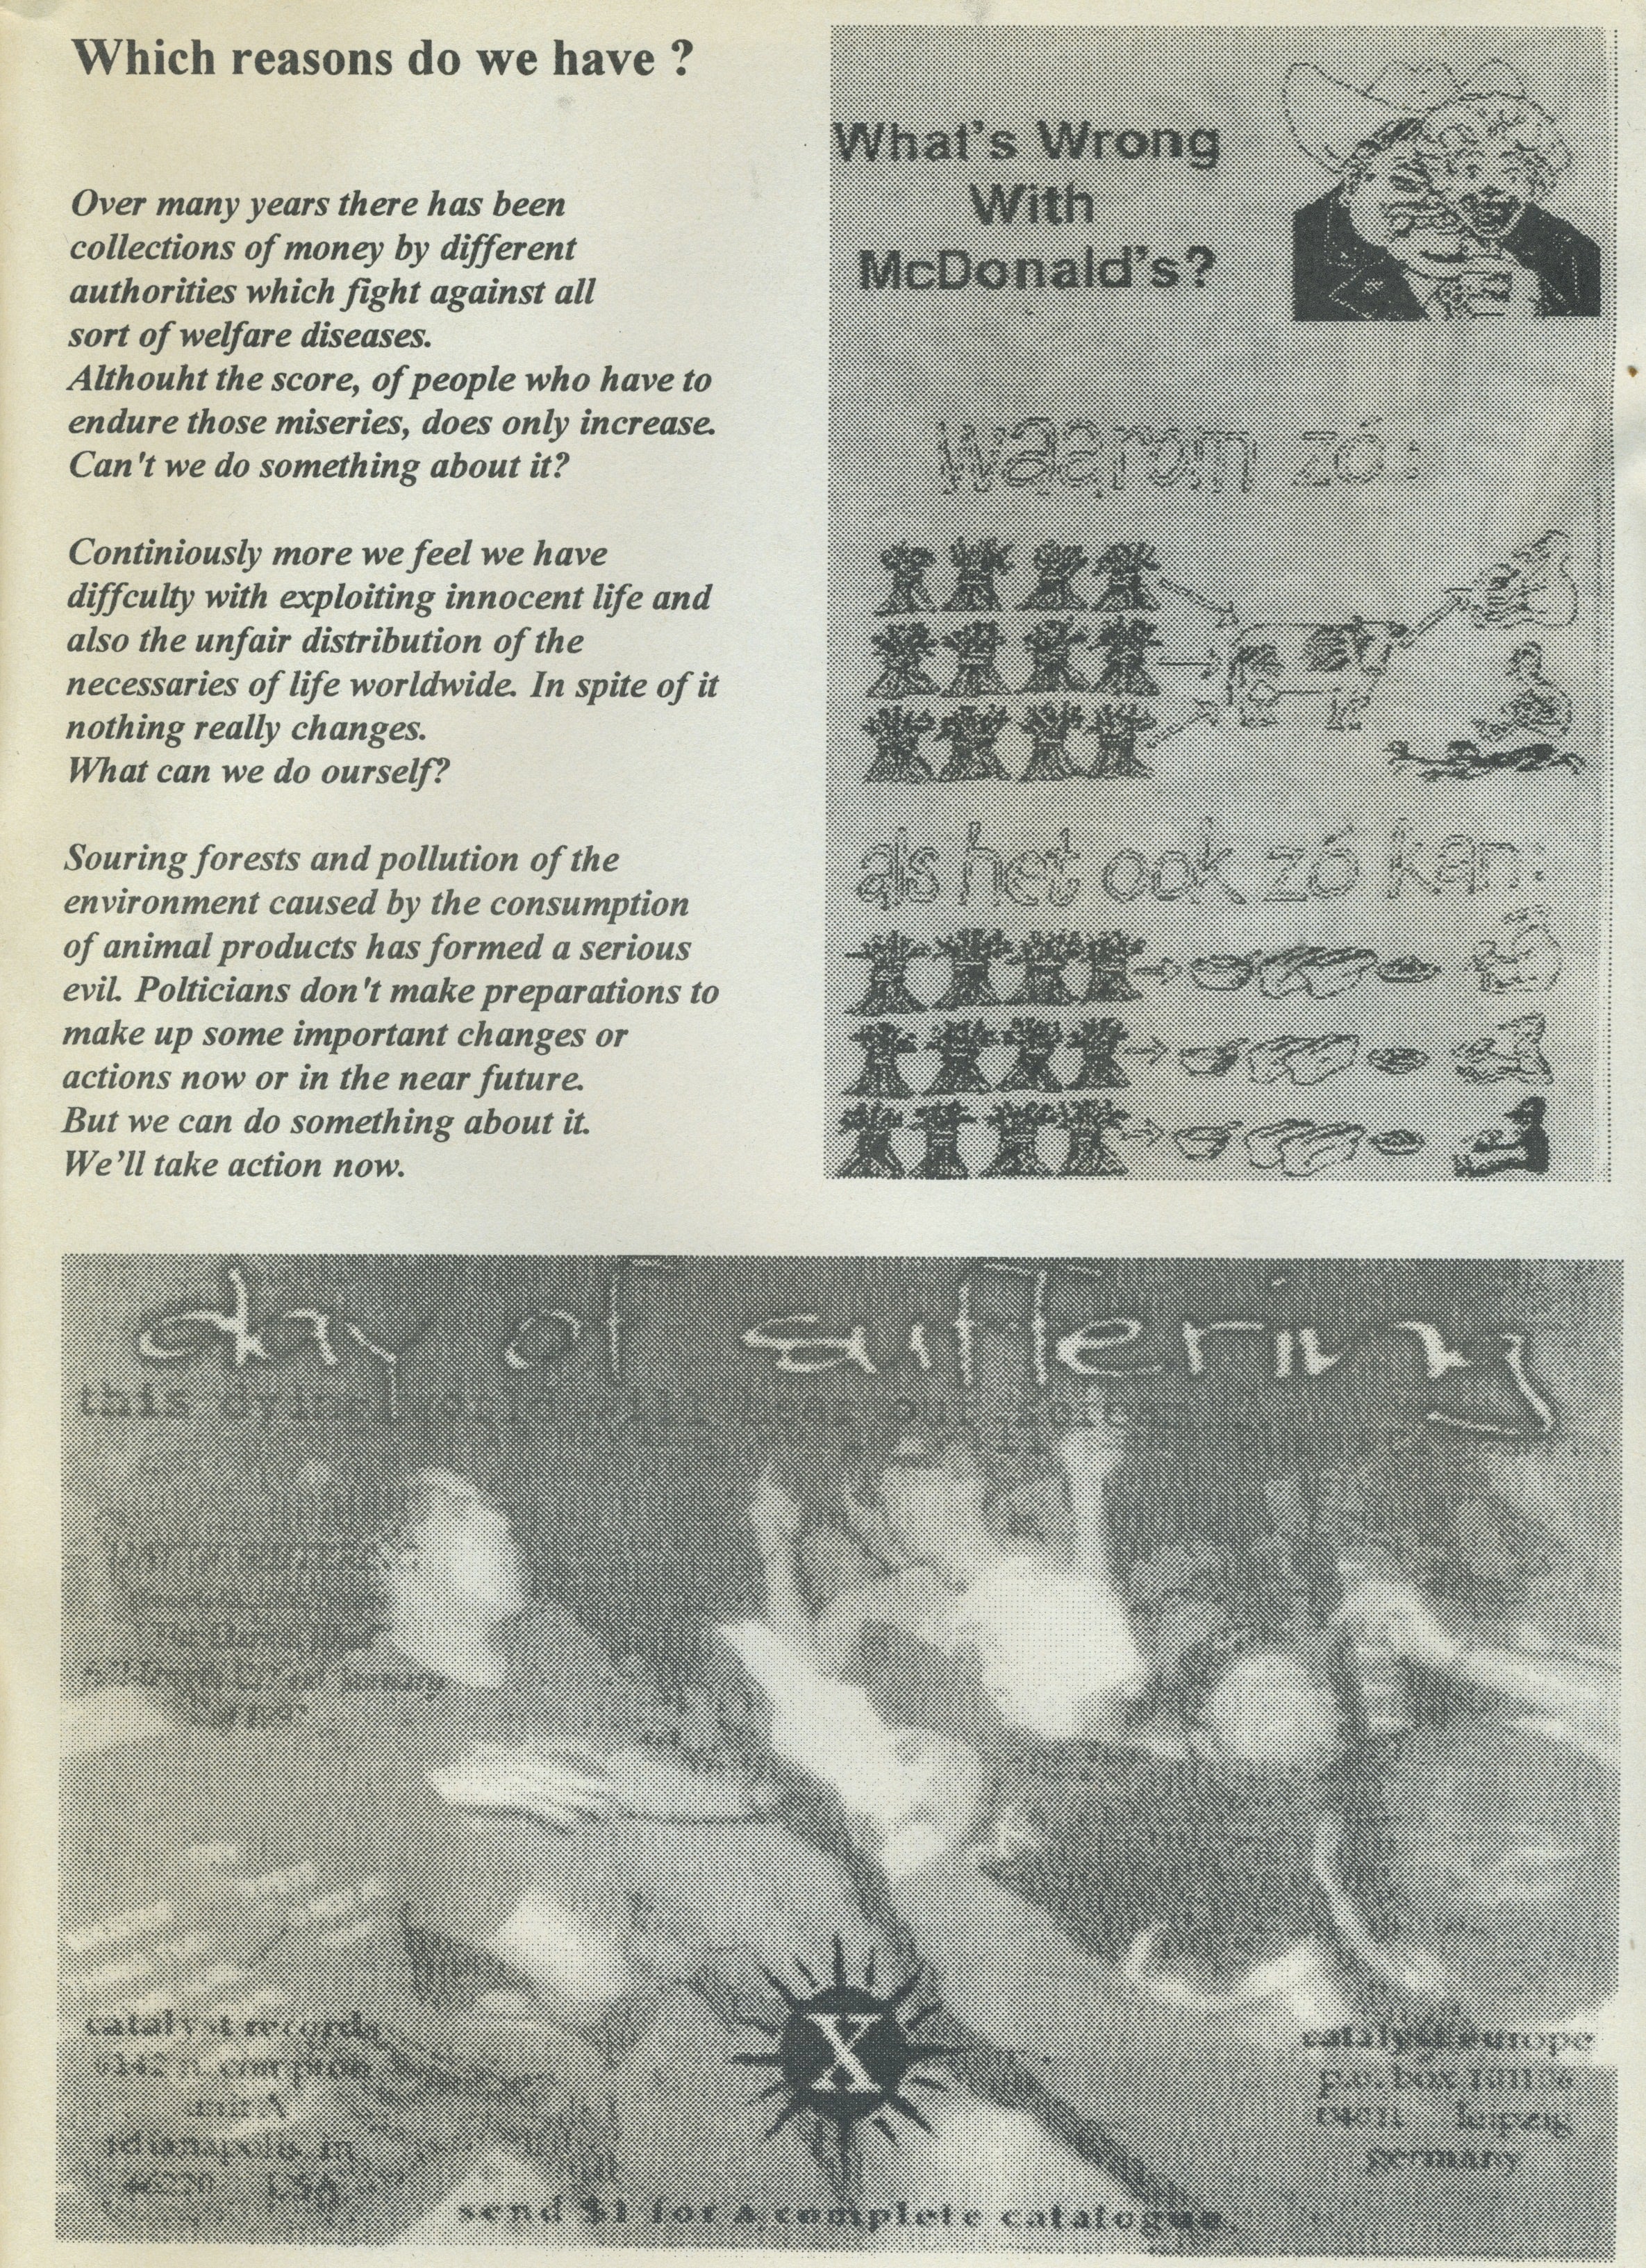 Which reasons do we have ?
Over many years there has been
collections of money by different
authorities which fight against all
sort of welfare diseases.
Althouht the score, of people who have to
endure those miseries, does only increase.
Can't we do something about it?
Continiously more we feel we have
diffculty with exploiting innocent life and
also the unfair distribution of the
necessaries of life worldwide. In spite of it
nothing really changes.
What can we do ourself?
Souring forests and pollution of the
environment caused by the consumption
of animal products has formed a serious
evil. Polticians don't make preparations to
make up some important changes or
actions now or in the near future.
But we can do something about it.
We'll take action now.
What's Wrong
With
McDonald's?
waarom zó:
als het ook zó kan:
day of suffering
this dying world
catalyst records
unit A
indianapolis, in
46220 USA
X
catalyst europe
p.o. box
leipzig
germany
send $1 for a complete catalogue.